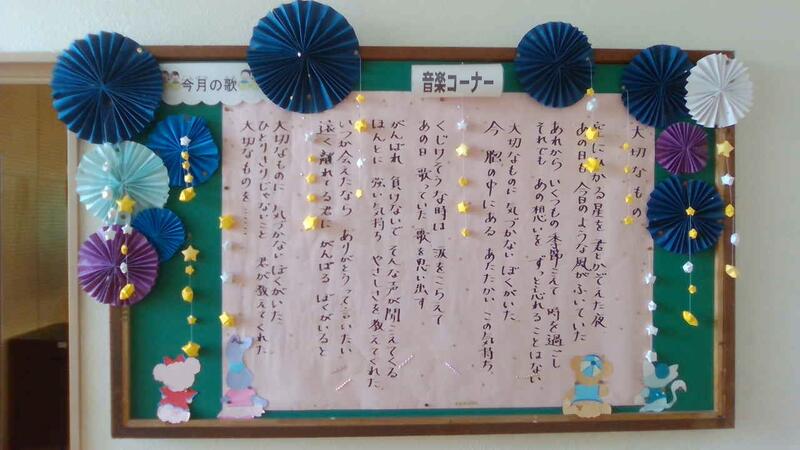 音楽コーナー
今月の歌
大切なもの
空にひかる星を 君とかぞえた夜
あの日も 今日のような風がふいていた
あれから いくつもの季節こえて 時を過ごし
それでも あの想いを ずっと忘れることはない
大切なものに 気づかない ぼくがいた
今 胸の中にある あたたかい この気持ち
くじけそうな時は 涙をこらえて
あの日 歌っていた 歌を思い出す
がんばれ 負けないで そんな声が聞こえてくる
ほんとに 強い気持ち やさしさを教えてくれた
いつか会えたなら ありがとうって言いたい
遠く離れてる君に がんばる ぼくがいると
大切なものに 気づかないぼくがいた
ひとりきりじゃないこと 君が教えてくれた
大切なものを……